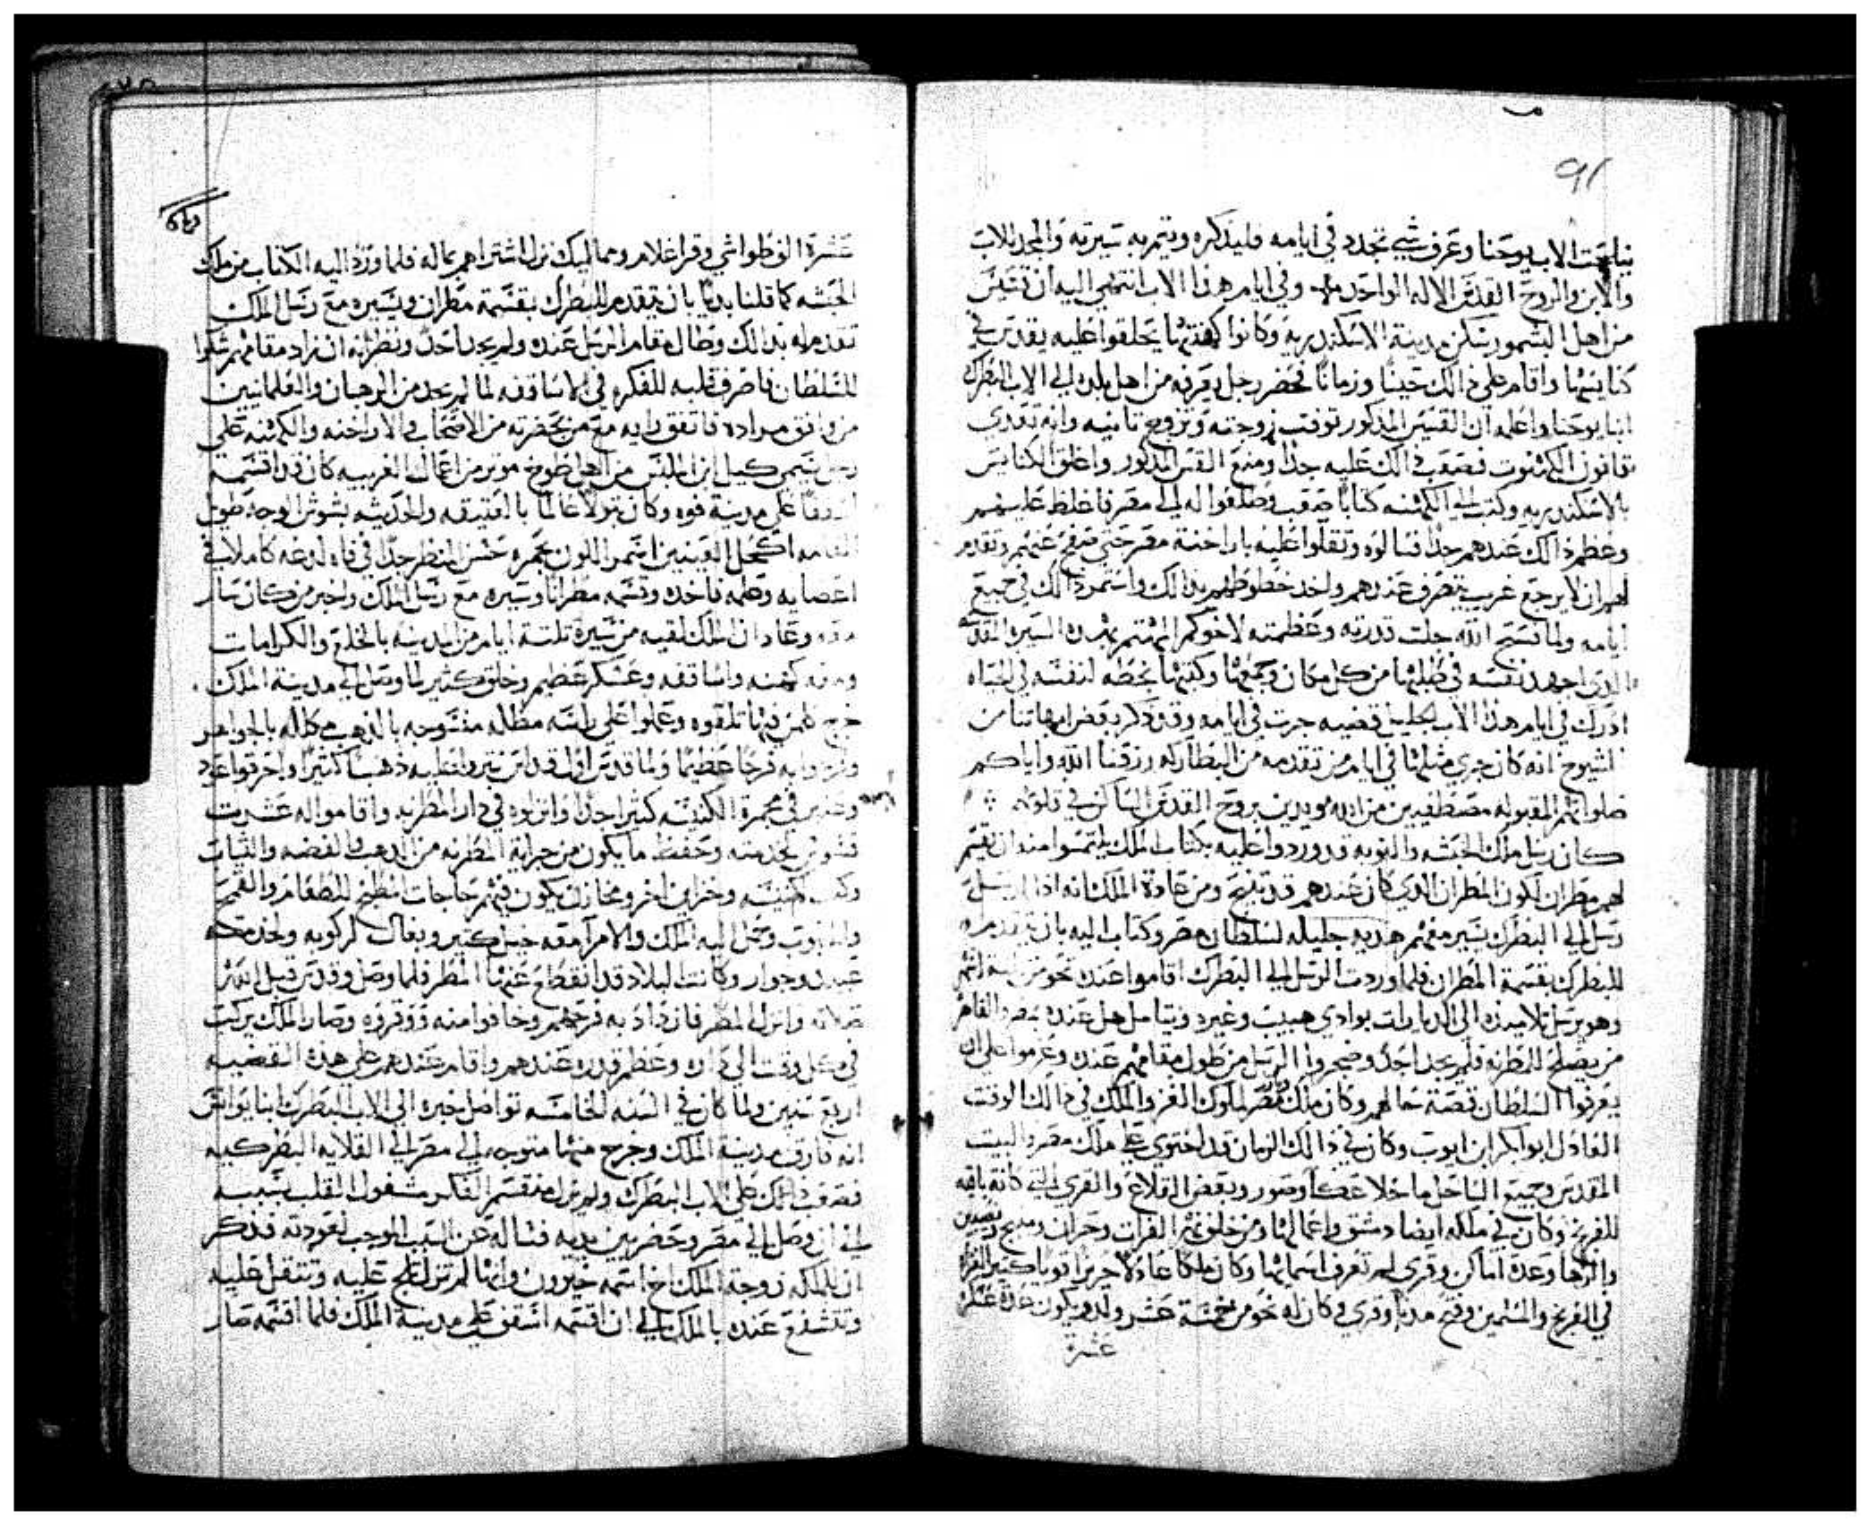 91
بناحيت الاب يوحنا وعرف شي تجدد في ايامه فليذكره ويتمر به سيرته والمجد للاب
والابن والروح القدس الاله الواحد وفي ايام هذا الاب انتهي اليه ان قسيس
من اهل البشمور يسكن مدينة الاسكندريه وكانوا كهنتها يحلقوا عليه يقدس في
كنايسها واقام علي ذالك حينا وزمانا فحضر رجل يعرفه من اهل بلده الي الاب البطرك
انبا يوحنا واعلمه ان القسيس المذكور توفت زوجته وتزوج تانيه وانه تعدي
قانون الكهنوت فصعب ذالك عليه جدا ومنع القس المذكور واغلق الكنايس
بالاسكندريه وكتب الي الكهنه كتابا صعب وطلعوا له الي مصر فاغلظ عليهم
وعظم ذالك عندهم جدا فسالوه وتقلوا عليه باراخنة مصر حتي صفح عنهم وتقدم
لهم ان لا يرجع غريب يتصرف عندهم واخد خطوطهم بذالك واستمر ذالك في جميع
ايامه ولما فسح الله جلت قدرته وعظمته لاخوكم المهتم بهده السيره المقدسه
الذي اجهد نفسه في طلبها من كل مكان وجمعها وكتبها بخطه لنفسه الي الحياه
ادرك في ايام هذا الاب الجليل قضيه جرت في ايامه وقد ذكر بعض ابهاتنا من
الشيوخ انه كان جري مثلها في ايام من تقدمه من البطاركه ورزقنا الله واياكم
صلواتهم المقبوله مصطفيين من الله مويدين بروح القدس الساكن في قلوبهم
كان رسل ملك الحبشه والنوبه قد وردوا عليه بكتاب الملك يلتمسوا منه ان يقسم
لهم مطران لكون المطران الذي كان عندهم قد تنيح ومن عادة الملك انه اذا ارسل
رسل الي البطرك يسير معهم هديه جليله لسلطان مصر وكتاب اليه بان يتقدم
للبطرك بقسمة المطران فلما وردت الرسل الي البطرك اقاموا عنده نحو من اشهر
وهو يرسل تلاميده الي الديارات بوادي هبيب وغيره ويتامل هل عنده بمصر والقاهره
من يصلح للمطرنه فلم يجد احد وضجروا الرسل من طول مقامهم عنده وعزموا علي ان
يعرفوا السلطان قصة حالهم وكان ملك مصر لملوك الغز والملك في ذالك الوقت
العادل ابو ابكر ابن ايوب وكان في ذالك الزمان قد احتوي علي ملك مصر والبيت
المقدس وجميع الساحل ما خلا عكا وصور وبعض القلاع والقري التي كانت باقيه
للفرنج وكان في ملكه ايضا دمشق واعمالها ومن خلف نهر الفرات وحران ومنبج ونصيبين
والرها وعده اماكن وقري لم تعرف اسمايها وكان ملكا عادلا حريزا قويا كثير الغزا
في الفرنج والمسلمين وفتح مدنا وقري وكان له نحو من خمسة عشر ولد ويكون عدة عسكره
عشرة
عشرة الف طواشي وقرا غلام ومماليك ترك اشتراهم بماله فلما ورد اليه الكتاب من ملك
الحبشه كما قلنا بديا بان يتقدم للبطرك بقسمة مطران ويسيره مع رسل الملك
تقدم له بذالك وطال مقام الرسل عنده ولم يجد احد ونظر انه ان زاد مقامهم شكوا
للسلطان فاصرف قلبه للفكر في الاساقفه لما لم يجد من الرهبان والعلمانيين
من وافق مراده فاتفق رايه مع من بحضرته من الاصحاب والاراخنه والكهنه علي
رجل يسمي كيل ابن الملبس من اهل طوخ موتر من اعمال الغربيه كان قد اقسمه
اسقفا علي مدينة فوه وكان بتولا عالما بالعتيقه والحديثه بشوش الوجه طويل
القامه اكحل العينين اسمر اللون بحمره حسن المنظر جدا في فاه لدغه كاملا في
اعضايه وعلمه فاخده وقسمه مطرانا وسيره مع رسل الملك واخبر من كان سار
معه وعاد ان الملك لقيه من مسيرة تلتة ايام من المدينه بالخلع والكرامات
ومعه كهنه واساقفه وعسكر عظيم وخلق كثير لما وصل الي مدينة الملك
خرج من فيها تلقوه وعملوا علي راسه مظله منسوجه بالذهب مكلله بالجواهر
وفرحوا به فرحا عظيما ولما قدس اول قداس نتروا عليه ذهبا كثيرا واحرقوا عود
وعنبر في مجمرة الكنيسه كثير جدا وانزلوه في دار المطرنه واقاموا له عشرت
قسوس لخدمته وحفظ ما يكون من جراية المطرنه من الذهب والفضه والثياب
وكتب كنيسه وخزاين اخر ومخازن يكون فيهم حاجات المطبخ للطعام والقمح
والحبوب وحمل اليه الملك والامرا معه خيل كثير وبغال لركوبه ولخدمته
عبيد وجوار وكانت البلاد قد انقطع عنها المطر فلما وصل وقدس قبل الله
صلاته وانزل المطر فازداد به فرحهم وخافوا منه ووقروه وصار الملك يركب
في كل وقت الي داره وعظم قدره عندهم واقام عندهم علي هده القضيه
اربع سنين ولما كان في السنه الخامسه تواصل خبره الي الاب البطرك انبا يوانس
انه فارق مدينة الملك وخرج منها متوجه الي مصر الي القلايه البطركيه
فصعب ذالك علي الاب البطرك ولم يزل منقسم الفكر مشغول القلب بسببه
الي ان وصل الي مصر وحضر بين يديه فساله عن السبب الموجب لعودته فذكر
ان للملكه زوجة الملك اخ اسمه خيرون وانها لم تزل تلح عليه وتتقل عليه
وتتشفع عنده بالملك الي ان اقسمه اسقف علي مدينة الملك فلما اقسمه صار